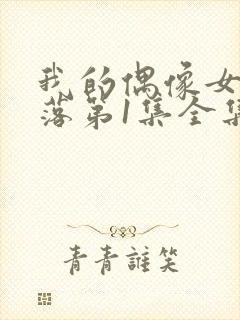 我的偶像女
落第1集全集
青青誰笑